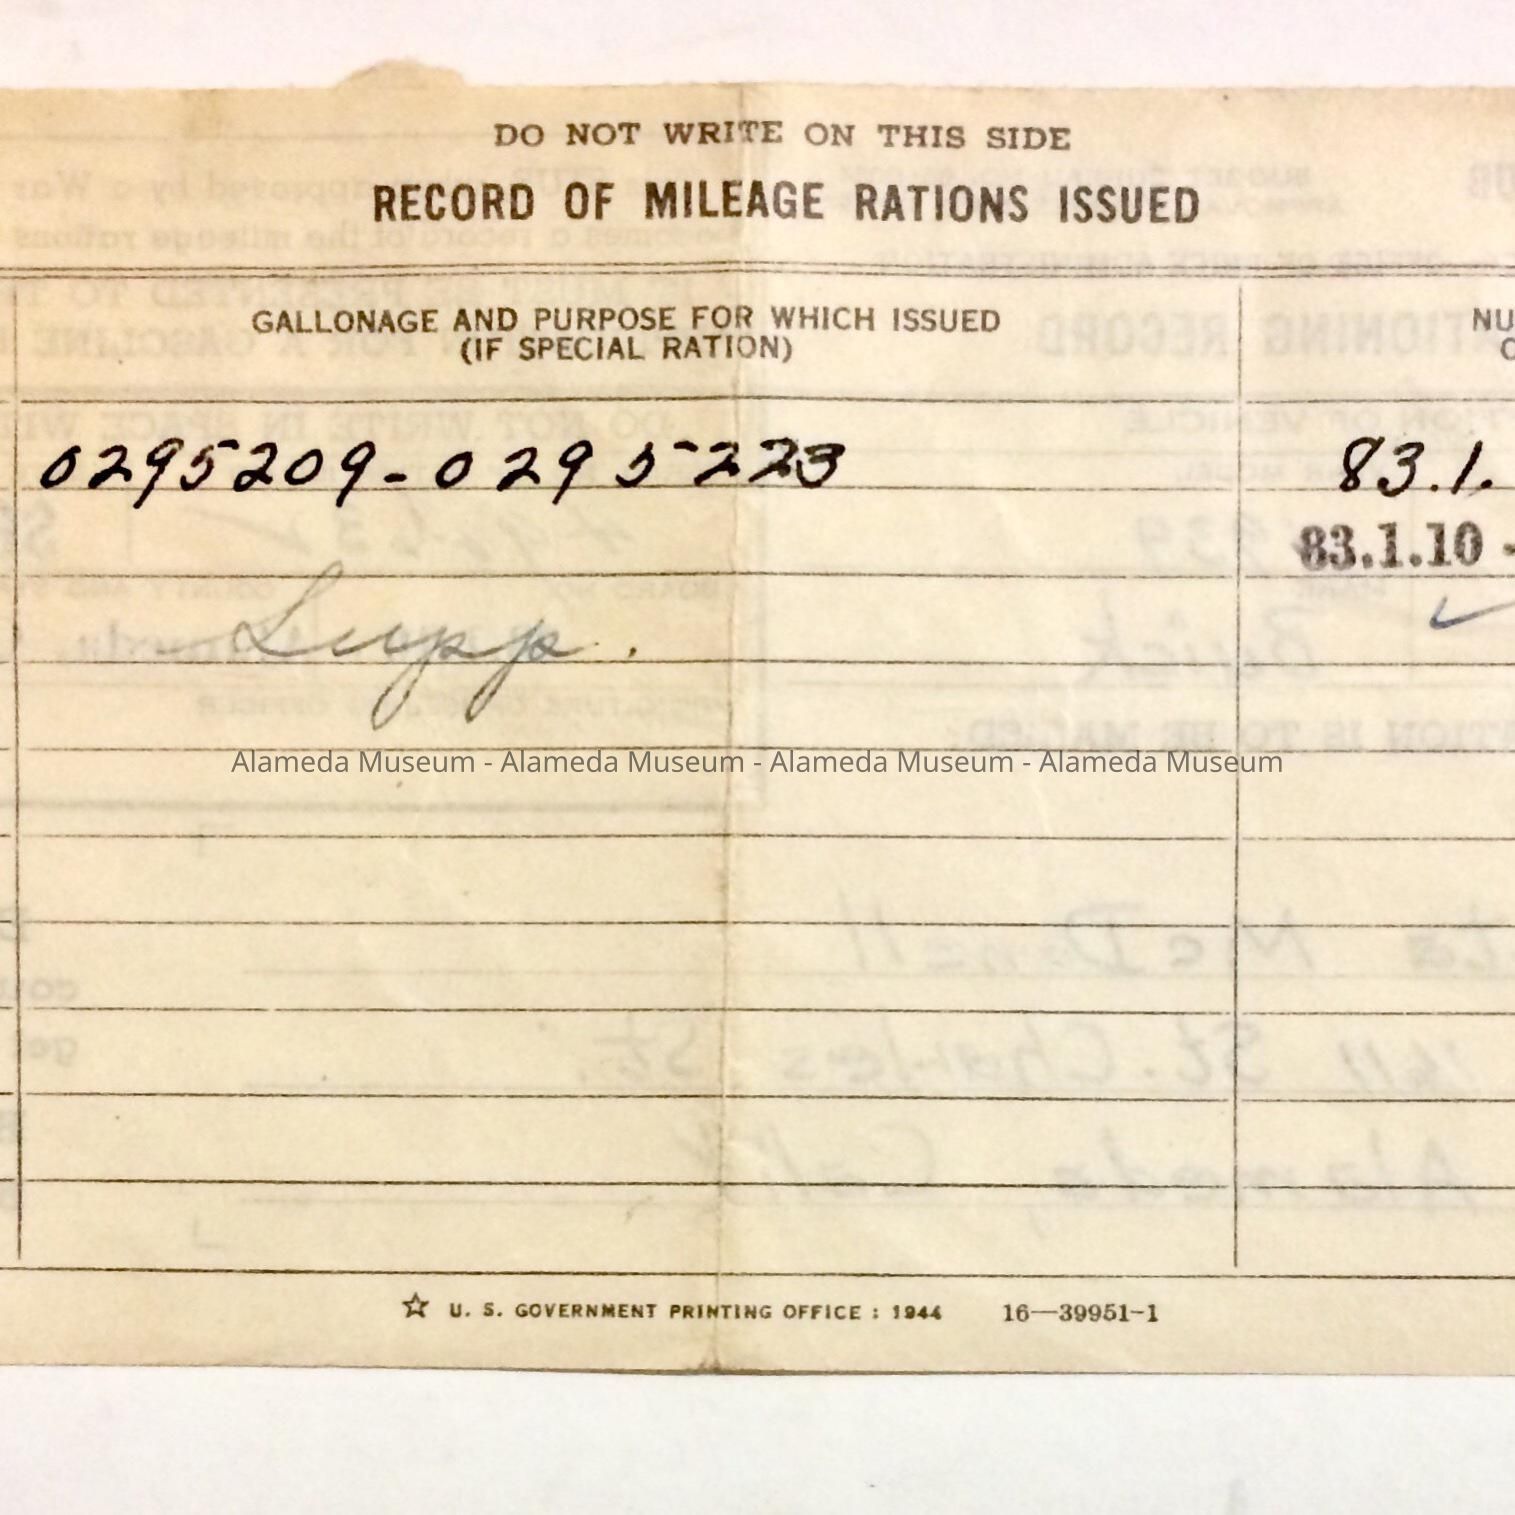 DO NOT WRITE ON THIS SIDE
RECORD OF MILEAGE RATIONS ISSUED
GALLONAGE AND PURPOSE FOR WHICH ISSUED
(IF SPECIAL RATION)
NU
0295209-0295223
83.1.
83.1.10 -
Supp.
Alameda Museum - Alameda Museum - Alameda Museum - Alameda Museum
☆ U. S. GOVERNMENT PRINTING OFFICE : 1944 16—39951-1